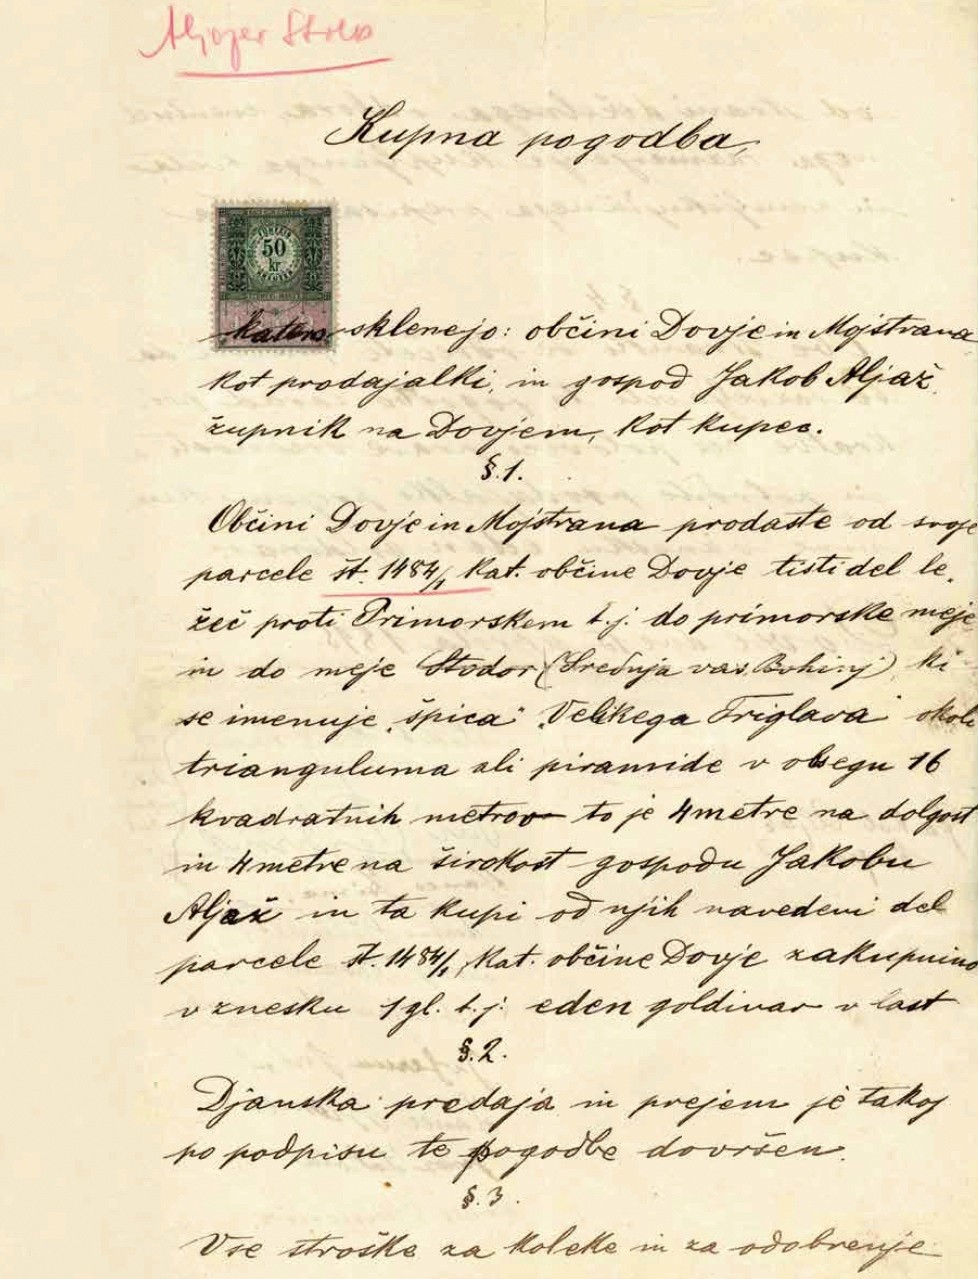 Aljažev Stolp
Kupna pogodba,
50
kr
katero sklenejo: občini Dovje in Mojstrana,
kot prodajalki, in gospod Jakob Aljaž
župnik na Dovjem, kot kupec.
§.1.
Občini Dovje in Mojstrana prodaste od svoje
parcele št. 1484/1 kat. občine Dovje tisti del le-
žeč proti Primorskem t.j. do primorske meje
in do meje Studor (Srednja vas, Bohinj), ki
se imenuje „špica" Velikega Triglava okoli
trianguluma ali piramide v obsegu 16
kvadratnih metrov to je 4 metre na dolgost
in 4 metre na širokost gospodu Jakobu
Aljaž in ta kupi od njih navedeni del
parcele št. 1484/1 kat. občine Dovje za kupnino
v znesku 1 gl. t.j. eden goldinar v last
§.2.
Djanska predaja in prejem je takoj
po podpisu te pogodbe dovršen.
§.3.
Vse stroške za koleke in za odobrenje